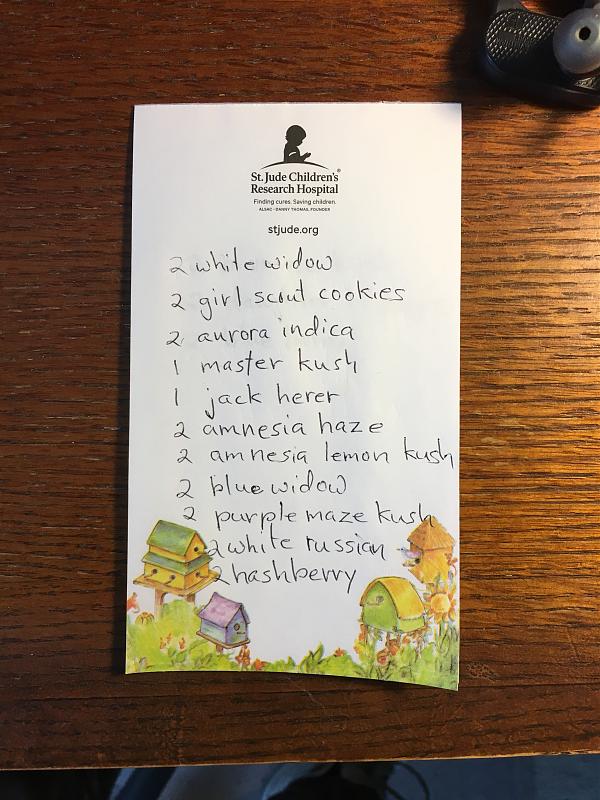 St. Jude Children's®
Research Hospital
Finding cures. Saving children.
ALSAC • DANNY THOMAS, FOUNDER
stjude.org
2 white widow
2 girl scout cookies
2 aurora indica
1 master kush
1 jack herer
2 amnesia haze
2 amnesia lemon kush
2 blue widow
2 purple maze kush
2 white russian
2 hashberry